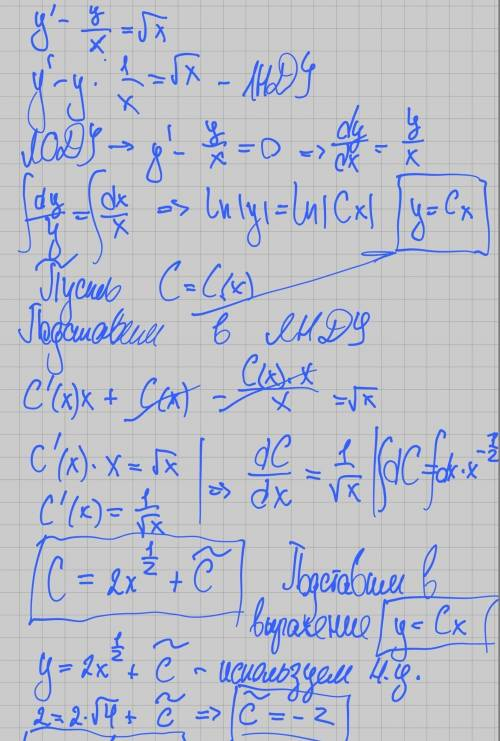 y' - y/x = √x
y' - y · 1/x = √x - ЛНДУ
ЛОДУ → y' - y/x = 0 => dy/dx = y/x
∫ dy/y = ∫ dx/x => ln|y| = ln|Cx| y = Cx
Пусть C = C(x)
Подставим в ЛНДУ
C'(x)x + C(x) - C(x)·x/x = √x
C'(x)·x = √x | => dC/dx = 1/√x | ∫dC = ∫dx·x^(-1/2)
C'(x) = 1/√x
C = 2x^(1/2) + C̃ Подставим в
выражение y = Cx
y = 2x^(1/2) + C̃ - используем н.у.
2 = 2·√4 + C̃ => C̃ = -2